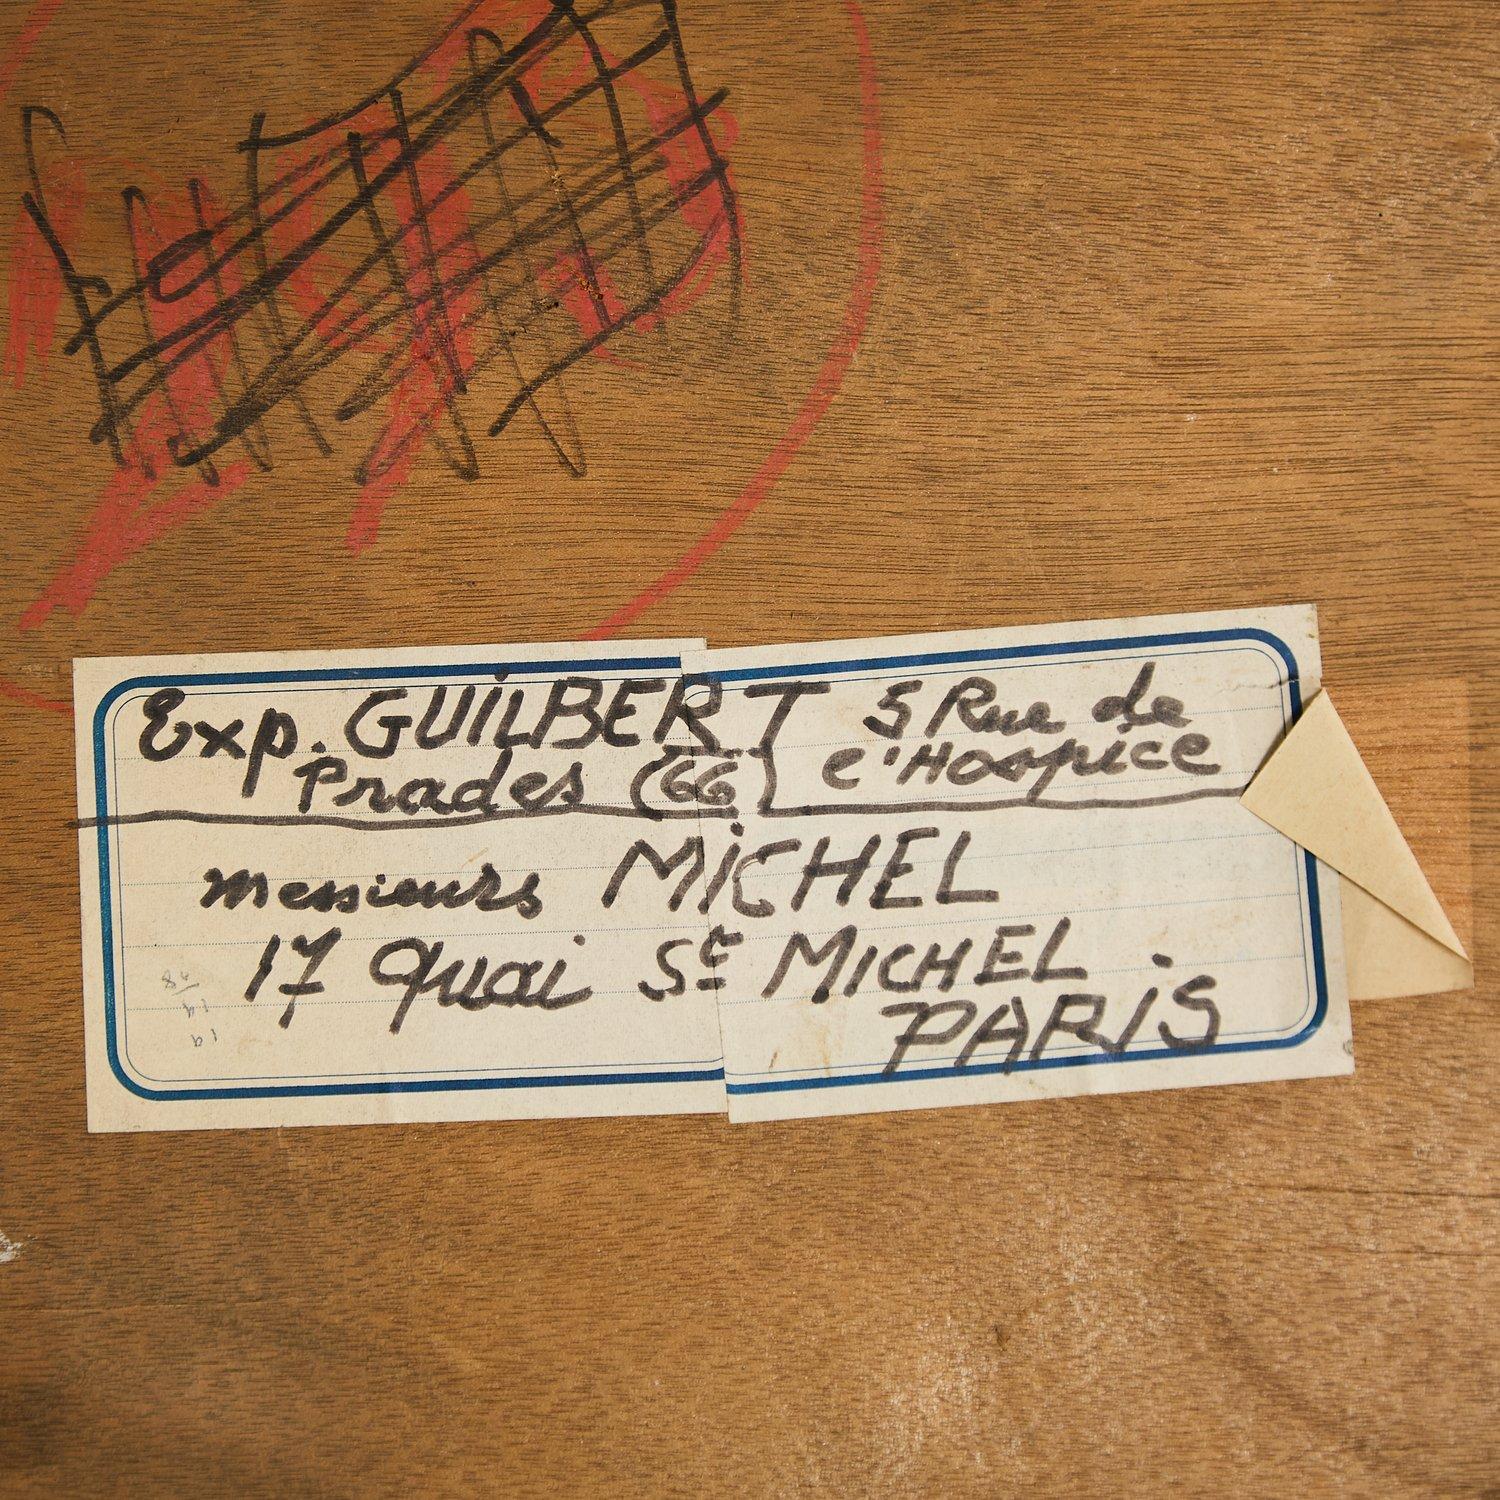 Exp. GUILBERT 5 Rue de
Prades (66) l'Hospice
messieurs MICHEL
17 Quai St MICHEL
PARIS